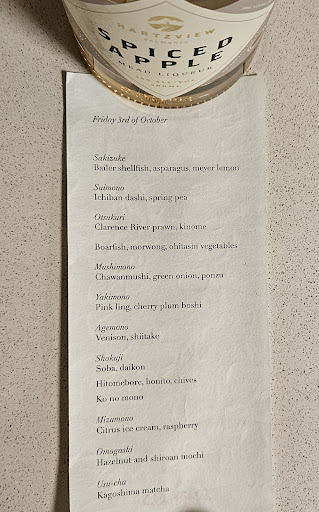 HARTZVIEW
SPICED
APPLE
MEAD LIQUEUR
Friday 3rd of October
Sakizuke
Bailer shellfish, asparagus, meyer lemon
Suimono
Ichiban dashi, spring pea
Otsukuri
Clarence River prawn, kinome
Boarfish, morwong, ohitashi vegetables
Mushimono
Chawanmushi, green onion, ponzu
Yakimono
Pink ling, cherry plum boshi
Agemono
Venison, shiitake
Shokuji
Soba, daikon
Hitomebore, bonito, chives
Ko no mono
Mizumono
Citrus ice cream, raspberry
Omogashi
Hazelnut and shiroan mochi
Usu-cha
Kagoshima matcha